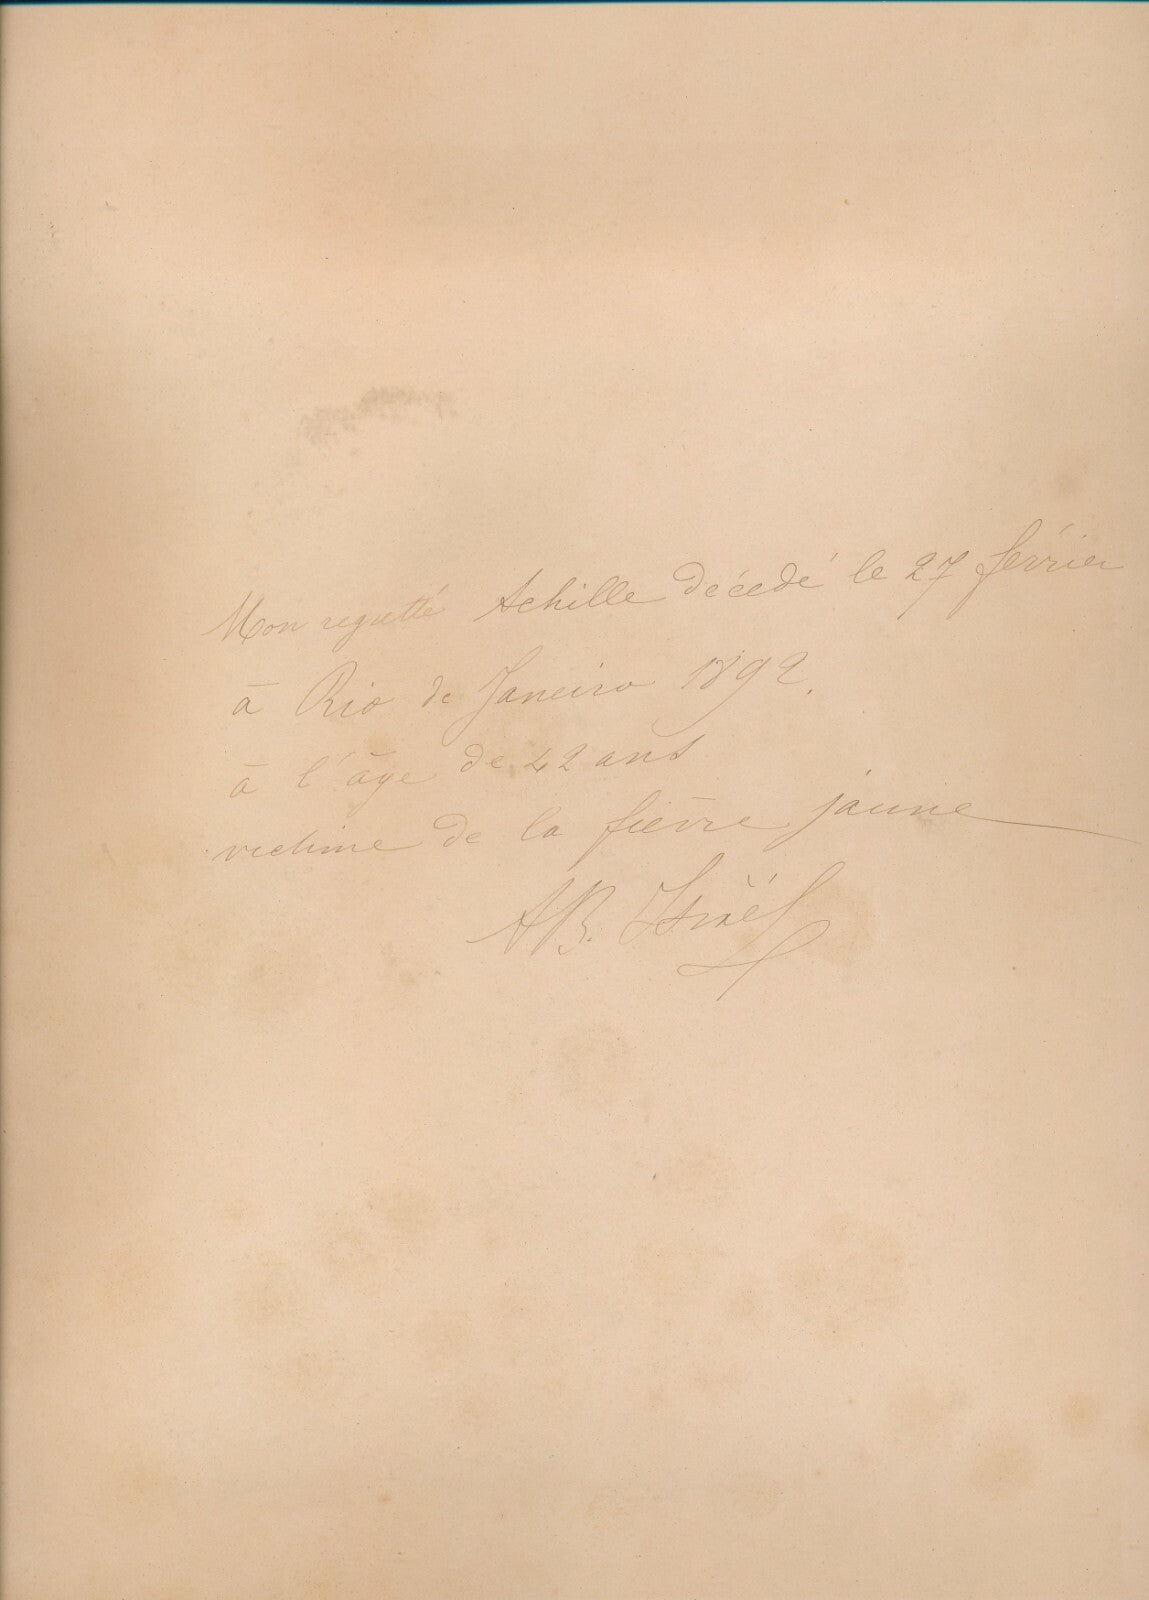 Mon regretté Achille décédé le 27 février
à Rio de Janeiro 1892.
à l'âge de 42 ans
victime de la fièvre jaune
AB. Israël